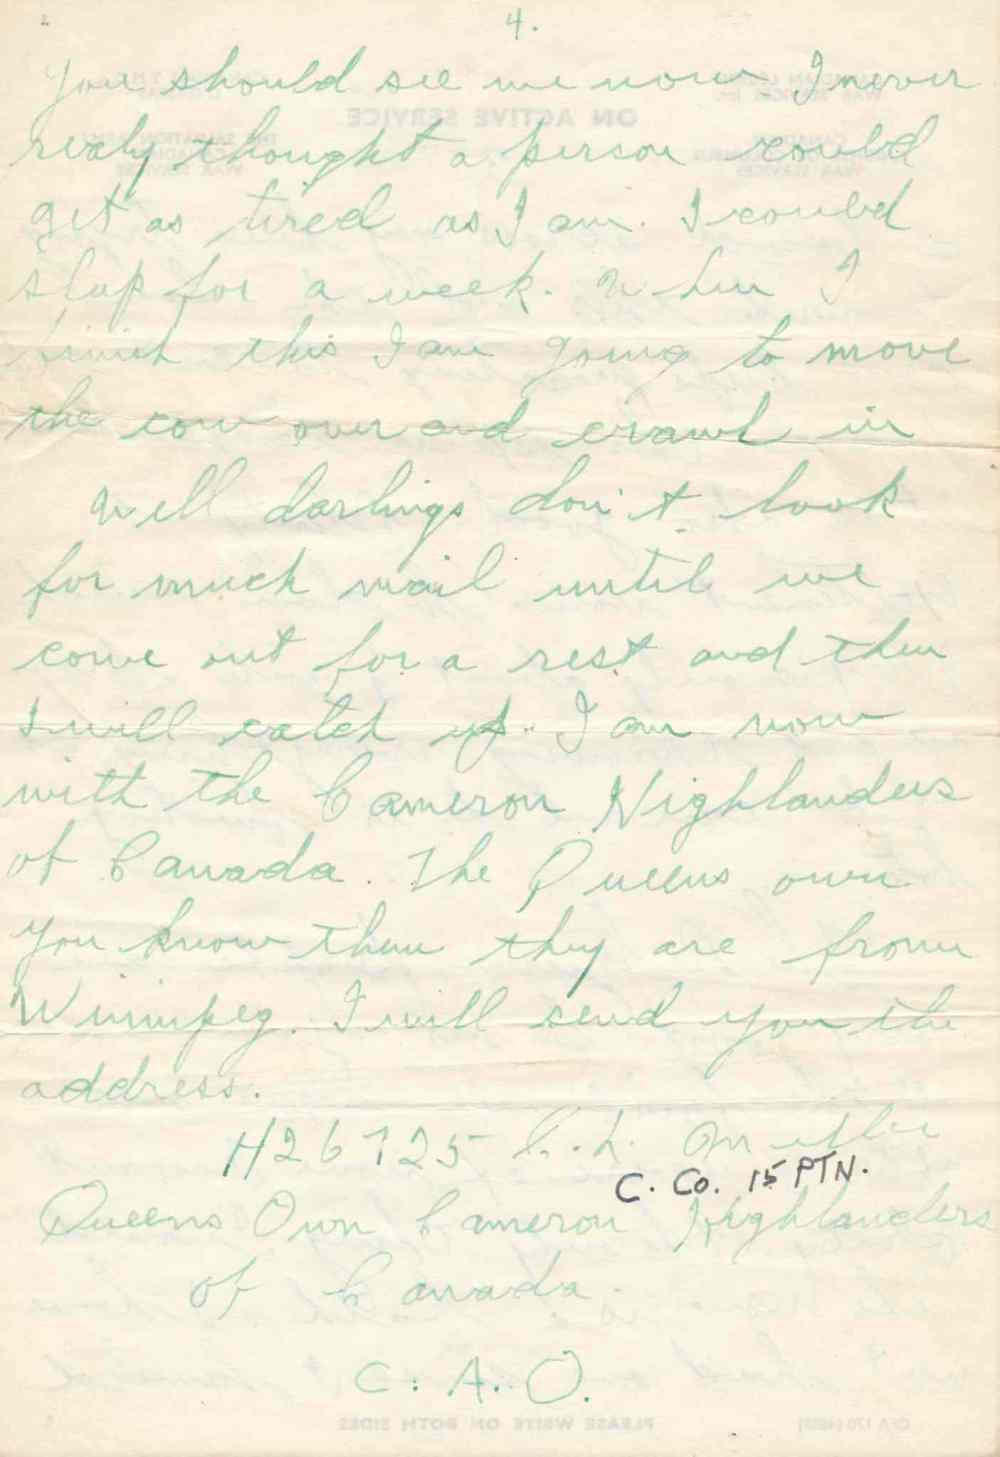 4.
You should see me now I never
realy thought a person could
get as tired as I am. I could
sleep for a week. When I
finish this I am going to move
the cow over and crawl in
Well darlings don't look
for much mail until we
come out for a rest and then
I will catch up. I am now
with the Cameron Highlanders
of Canada. The Queens own
you know them they are from
Winnipeg. I will send you the
address.
H26725 C.L.
C. Co. 15 PTN.
Queens Own Cameron Highlanders
of Canada.
C. A. O.